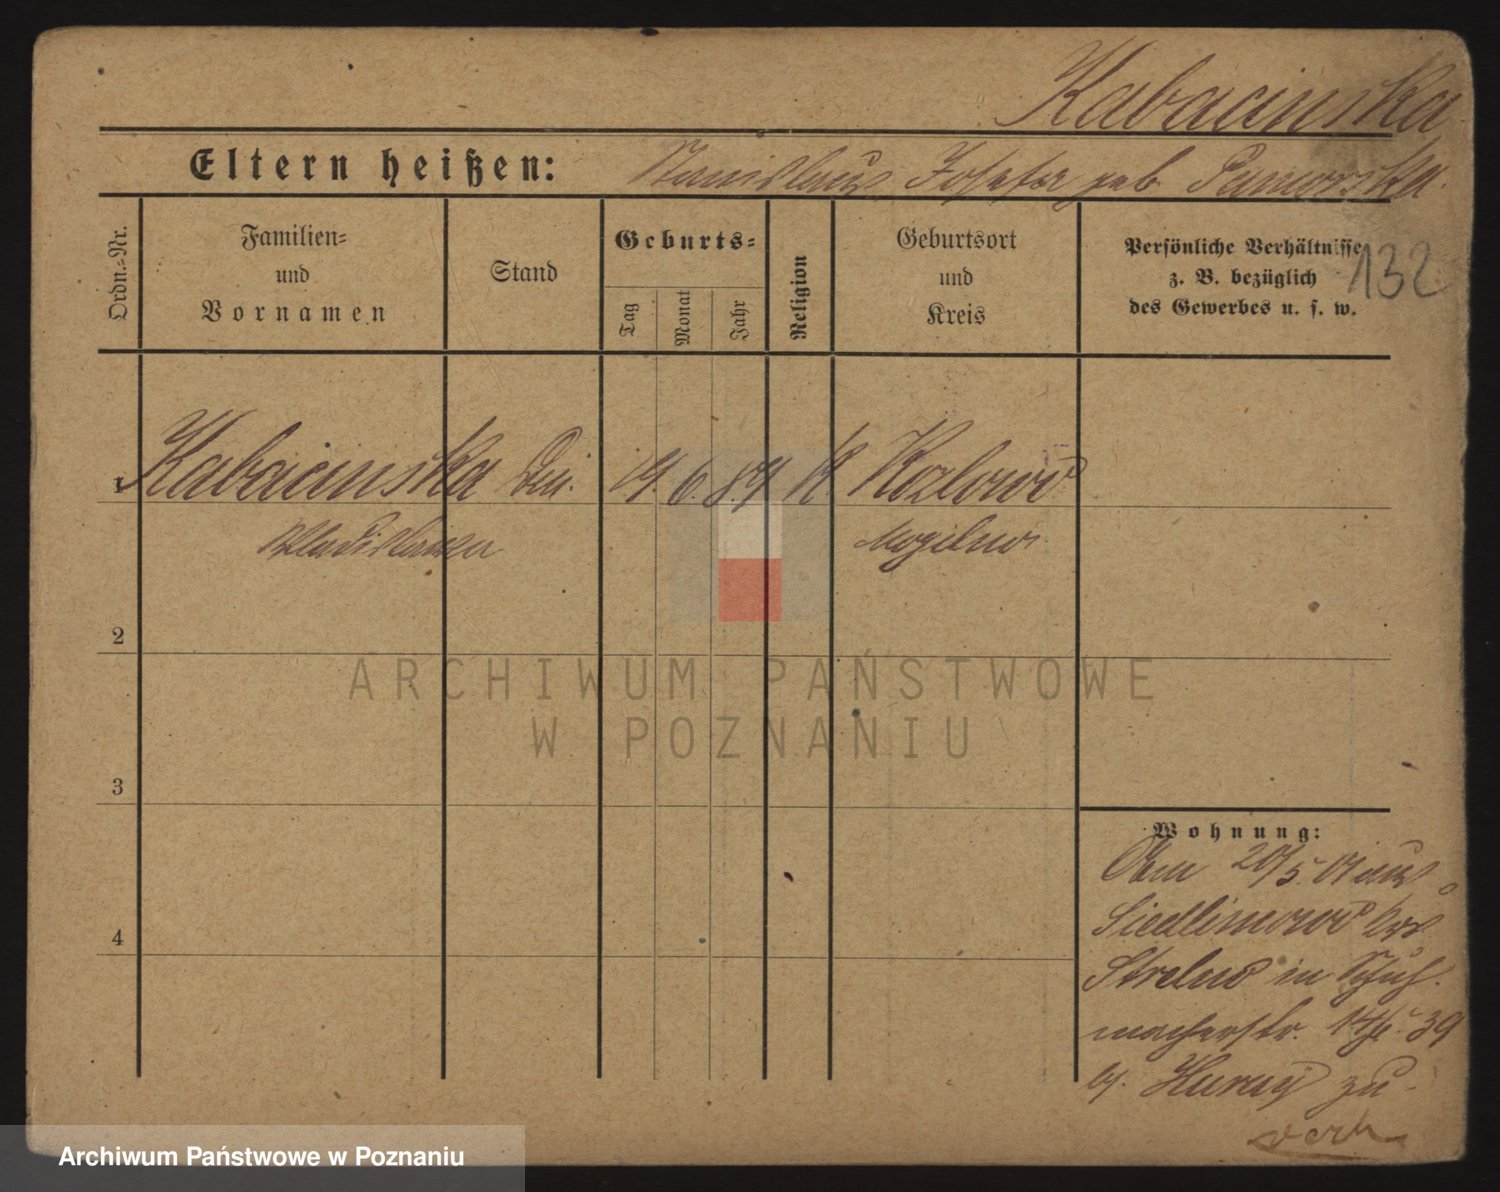 Kabacinska
Eltern heißen: Stanislaus Josefa geb.
Ordn.-Nr.
Familien-
und
Vornamen
Stand
Geburts-
Tag
Monat
Jahr
Religion
Geburtsort
und
Kreis
Persönliche Verhältnisse
z. B. bezüglich
des Gewerbes u. s. w.
132
1 Kabacinska 19. 6. 84 K. Kozlowo
Wladislawa Mogilno
2
3
4
Wohnung:
20/5. 01 aus
Siedlimowo Krs
Strelno in Schuh-
macherstr. 39
zu
verh
ARCHIWUM PAŃSTWOWE
W POZNANIU
Archiwum Państwowe w Poznaniu